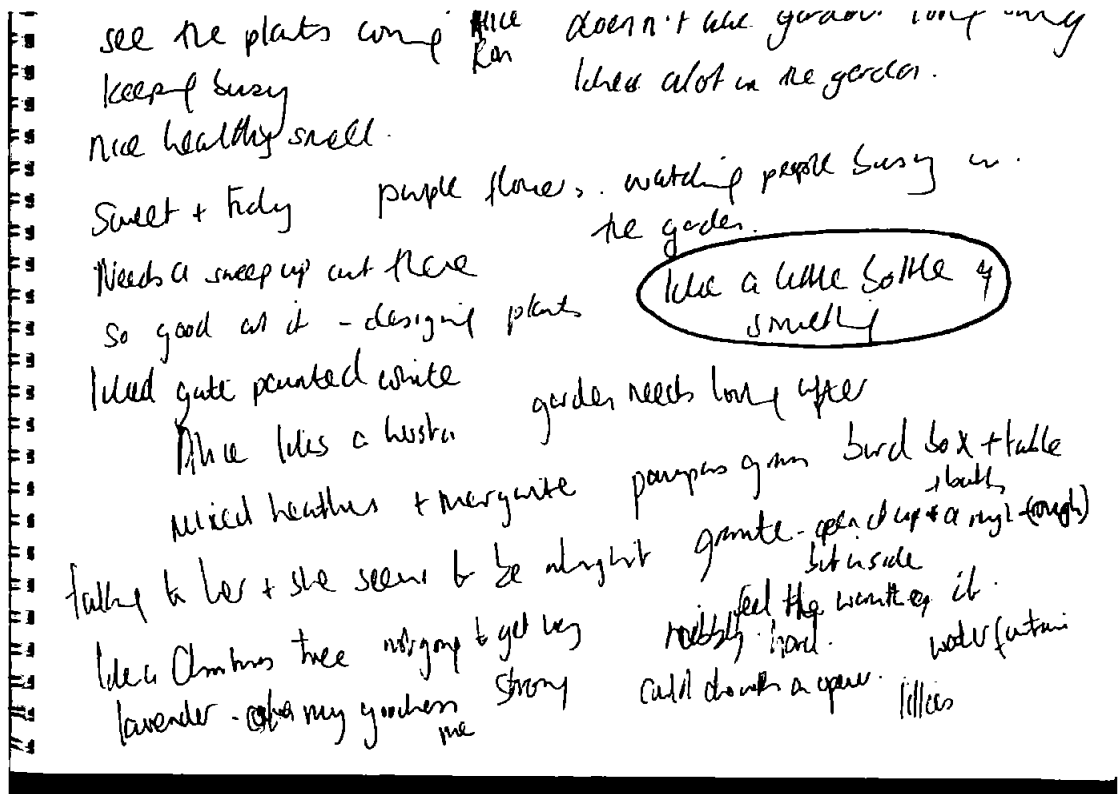 see the plants coming Alice Ron doesn't like gardens long
keeping busy likes alot in the garden.
nice healthy smell.
Sweet + tidy purple flowers. watching people busy in
the garden.
Needs a sweep up out there like a little bottle of
so good at it - designing plants something
liked gate painted white garden needs looking after
Alice likes a hosta
mixed heathers + margarite pampas grass bird box + table
+ bath
talking to her + she seems to be alright granite - open it up + a rough (rough)
but inside
feel the warmth of it.
like a Christmas tree not going to get very nobbly. hard. water fountain
lavender - my goodness me strong could do with an opener. lillies